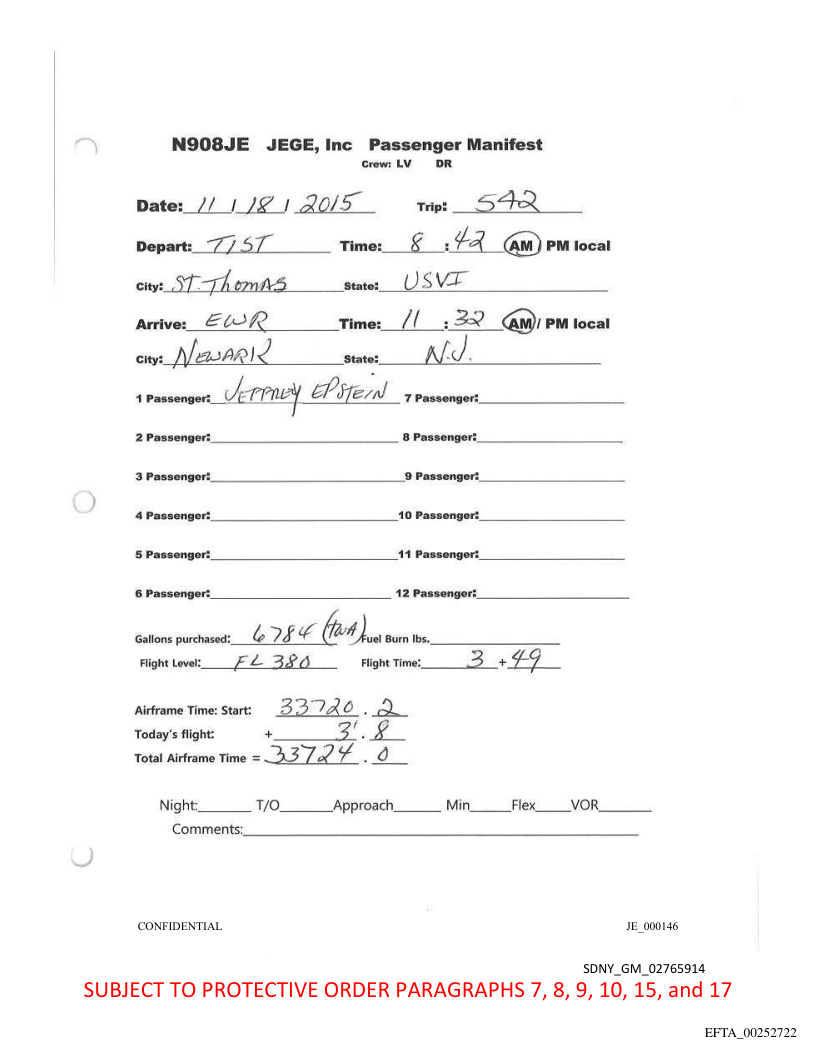 N908JE JEGE, Inc Passenger Manifest
Crew: LV DR
Date: 11 / 18 / 2015 Trip: 542
Depart: TIST Time: 8 : 42 AM / PM local
City: ST. ThomAS State: USVI
Arrive: EWR Time: 11 : 32 AM / PM local
City: NEWARK State: N.J.
1 Passenger: JEFFREY EPSTEIN 7 Passenger:
2 Passenger: 8 Passenger:
3 Passenger: 9 Passenger:
4 Passenger: 10 Passenger:
5 Passenger: 11 Passenger:
6 Passenger: 12 Passenger:
Gallons purchased: 6784 Fuel Burn lbs.
Flight Level: FL 380 Flight Time: 3 + 49
Airframe Time: Start: 33720 . 2
Today's flight: + 3 . 8
Total Airframe Time = 33724 . 0
Night: T/O Approach Min Flex VOR
Comments:
CONFIDENTIAL JE_000146
SDNY_GM_02765914
SUBJECT TO PROTECTIVE ORDER PARAGRAPHS 7, 8, 9, 10, 15, and 17
EFTA_00252722